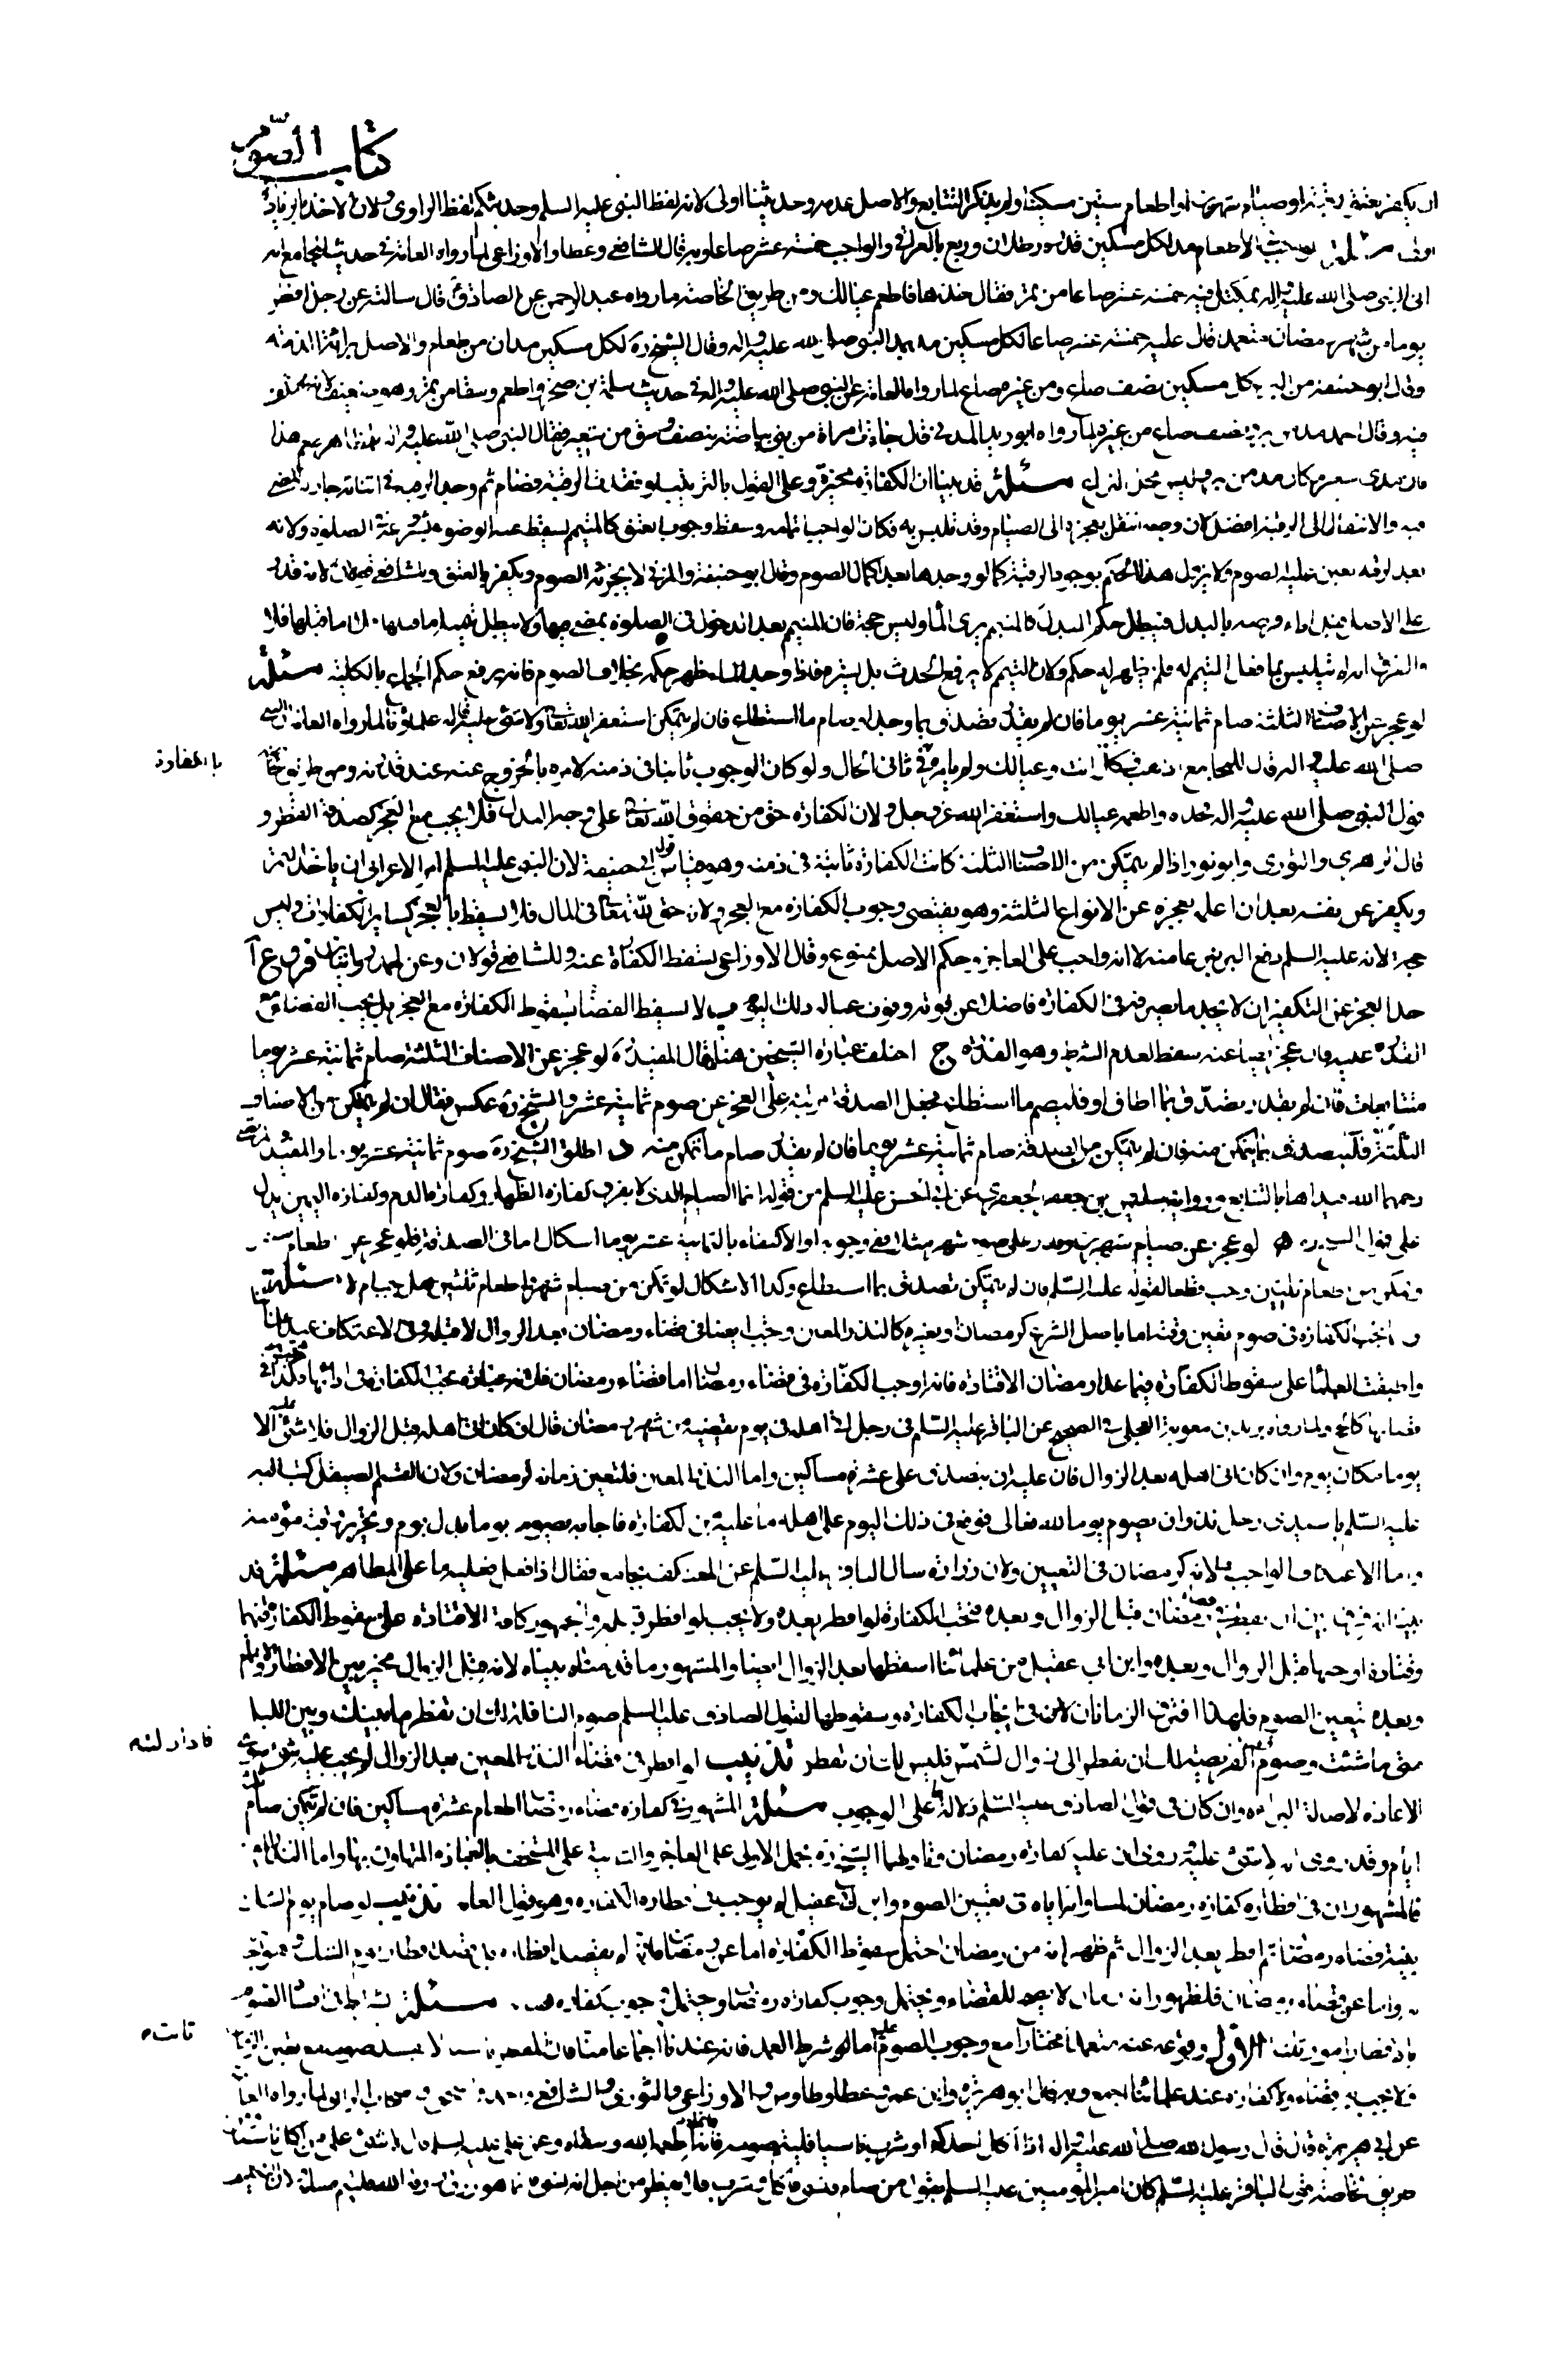 كتاب الصوم
ان يكفر بعتق رقبة او صيام شهرين او اطعام ستين مسكينا ولم يذكر التتابع والاصل عدمه وحديثنا اولى لانه لفظ النبي عليه السلم وحديثكم لفظ الراوي ولان الاخذ
مسئلة الاطعام مد لكل مسكين قدره رطلان وربع بالعراقي والواجب خمسة عشر صاعا وبه قال الشافعي وعطا والاوزاعي لما رواه العامة في حديث المجامع انه
اتى النبي صلى الله عليه واله بمكتل فيه خمسة عشر صاعا من تمر فقال خذها فاطعم عيالك ومن طريق الخاصة ما رواه عبد الرحمن عن الصادق ع قال سالته عن رجل افطر
يوما من شهر رمضان متعمدا قال عليه خمسة عشر صاعا لكل مسكين مد بمد النبي صلى الله عليه واله وقال الشيخ ره لكل مسكين مدان من طعام والاصل براءة الذمة
وقال ابو حنيفة من البر لكل مسكين نصف صاع ومن غيره صاع لما رواه العامة عن النبي صلى الله عليه واله في حديث سلمة بن صخر واطعم وسقا من تمر وهو ضعيف لانه مختلف
فيه وقال احمد مد من بر ونصف صاع من غيره لما رواه ابو زيد المدني قال جاءت امراة من بني بياضة بنصف وسق من شعير فقال النبي صلى الله عليه واله اطعم هذا
فان مدى شعير مكان مد من بر وليس محل النزاع مسئلة قد بينا ان الكفارة مخيرة وعلى القول بالترتيب لو فقد الرقبة فصام ثم وجد الرقبة في اثنائه جاز له المضي
فيه والانتقال الى الرقبة افضل لان فرضه انتقل بعجزه الى الصيام وقد تلبس به فكان الواجب اتمامه وسقط وجوب العتق كالمتيمم يسقط عنه الوضوء بشروعه في الصلوة ولانه
بعد لرقبة تعين عليه الصوم ولا يزول هذا الحكم بوجود الرقبة كما لو وجدها بعد اكمال الصوم وقال ابو حنيفة والمزني لا يجزئه الصوم ويكفر بالعتق وللشافعي قولان لانه قدر
على الاصل قبل اداء فرضه بالبدل فبطل حكم البدل كالمتيمم يرى الماء وليس حجة فان المتيمم بعد الدخول في الصلوة يمضي فيها ولا يبطل تيممه اما قبلها فلا
والفرق انه لم يتلبس بما فعل التيمم له فلم يظهر له حكم ولان التيمم لا يرفع الحدث بل يستره فاذا وجد الماء ظهر حكمه بخلاف الصوم فانه يرفع حكم الجماع بالكلية مسئلة
لو عجز عن الاصناف الثلثة صام ثمانية عشر يوما فان لم يقدر تصدق بما وجد او صام ما استطاع فان لم يتمكن استغفر الله تعالى ولا شئ عليه قاله علماؤنا لما رواه العامة ان النبي
صلى الله عليه واله قال للمجامع اذهب فكله انت وعيالك ولم يامره في ثاني الحال ولو كان الوجوب ثابتا في ذمته لامره بالخروج عنه عند قدرته ومن طريق الخاصة
قول النبي صلى الله عليه واله خذه واطعمه عيالك واستغفر الله عز وجل ولان الكفارة حق من حقوق الله تعالى على وجه البدل فلا يجب مع العجز كصدقة الفطر و
قال الزهري والثوري وابو ثور اذا لم يتمكن من الاصناف الثلثة كانت الكفارة ثابتة في ذمته وهو قياس قول ابي حنيفة لان النبي عليه السلم امر الاعرابي ان ياخذ التمر
ويكفر عن نفسه بعد ان اعلمه بعجزه عن الانواع الثلثة وهو يقتضي وجوب الكفارة مع العجز ولانه حق لله تعالى في المال فلا يسقط بالعجز كساير الكفارات وليس
حجة لانه عليه السلم دفع اليه تبرعا منه لا انه واجب على العاجز وحكم الاصل ممنوع وقال الاوزاعي يسقط الكفارة عنه وللشافعي قولان وعن احمد روايتان فروع آ
حد العجز عن التكفير ان لا يجد ما يصرفه في الكفارة فاضلا عن قوته وقوت عياله ذلك اليوم ب لا يسقط القضاء بسقوط الكفارة مع العجز بل يجب القضاء مع
القدرة عليه فان عجز ايضا عنه سقط لعدم الشرط وهو القدرة ج اختلف عبارة الشيخين هنا فقال المفيد ره لو عجز عن الاصناف الثلثة صام ثمانية عشر يوما
متتابعات فان لم يقدر تصدق بما اطاق او فليصم ما استطاع فجعل الصدقة مرتبة على العجز عن صوم ثمانية عشر والشيخ ره عكس فقال ان لم يتمكن من الاصناف
الثلثة فليتصدق بما يتمكن منه فان لم يتمكن من الصدقة صام ثمانية عشر يوما فان لم يقدر صام ما تمكن منه د اطلق الشيخ ره صوم ثمانية عشر يوما والمفيد والمرتضى
رحمهما الله قيداها بالتتابع ورواية سليمان بن جعفر الجعفري عن ابي الحسن عليه السلم من قوله انما الصيام الذي لا يفرق كفارة الظهار وكفارة الدم وكفارة اليمين يدل
على قول الشيخ ره ه لو عجز عن صيام شهرين وقدر على صوم شهر مثلا ففي وجوبه او الاكتفاء بالثمانية عشر يوما اشكال اما في الصدقة فلو عجز عن اطعام ستين
وتمكن من اطعام ثلثين وجب قطعا لقوله عليه السلم فان لم يتمكن تصدق بما استطاع وكذا الاشكال لو تمكن من صيام شهر واطعام ثلثين هل يجب ام لا مسئلة
وانما تجب الكفارة في صوم تعين وقته اما باصل الشرع كرمضان او بغيره كالنذر المعين وتجب ايضا في قضاء رمضان بعد الزوال لا قبله وفي الاعتكاف عند علمائنا
واطبقت العلماء على سقوط الكفارة فيما عدا رمضان الا قتادة فانه اوجب الكفارة في قضاء رمضان اما قضاء رمضان فلانه عبادة تجب الكفارة في ادائها فتجب في
قضائها كالحج ولما رواه بريد بن معوية العجلي في الصحيح عن الباقر عليه السلم في رجل اتى اهله في يوم يقضيه من شهر رمضان قال ان كان اتى اهله قبل الزوال فلا شئ عليه الا
يوما مكان يوم وان كان اتى اهله بعد الزوال فان عليه ان يتصدق على عشرة مساكين واما النذر المعين فلتعين زمانه كرمضان ولان القسم الصيقل كتب اليه
عليه السلم يا سيدي رجل نذر ان يصوم يوما لله تعالى فوقع في ذلك اليوم على اهله ما عليه من الكفارة فاجابه يصوم يوما بدل يوم وتحرير رقبة مؤمنة
واما الاعتكاف الواجب فلانه كرمضان في التعيين ولان زرارة سال الباقر عليه السلم عن المعتكف يجامع فقال اذا فعل فعليه ما على المظاهر مسئلة قد
بينا انه فرق بين ان يفطر في قضاء رمضان قبل الزوال وبعده فتجب الكفارة لو افطر بعده ولا تجب لو افطر قبله والجمهور كافة الا قتادة على سقوط الكفارة فيهما
وقتادة اوجبها قبل الزوال وبعده وابن ابي عقيل من علمائنا اسقطها بعد الزوال ايضا والمشهور ما قدمناه بيناه لانه قبل الزوال مخير بين الافطار والاتمام
وبعده تتعين الصوم فلهذا افترق الزمانان في ايجاب الكفارة وسقوطها لقول الصادق عليه السلم صوم النافلة لك ان تفطر ما بينك وبين الليل
متى ما شئت وصوم قضاء الفريضة لك ان تفطر الى زوال الشمس فاذا زالت الشمس فليس لك ان تفطر تذنيب لو افطر في قضاء النذر المعين بعد الزوال لم يجب عليه شئ سوى
الاعادة لاصالة البراءة وان كان في قول الصادق عليه السلم دلالة ما على الوجوب مسئلة المشهور في كفارة قضاء رمضان اطعام عشرة مساكين فان لم يتمكن صام ثلثة
ايام وقد روى انه لا شئ عليه وروى ان عليه كفارة رمضان وتاولهما الشيخ ره بحمل الاولى على العاجز والثانية على المستخف بالعبادة المتهاون بها واما النذر
فالمشهور ان في افطاره كفارة رمضان لمساواته اياه في تعيين الصوم وابن ابي عقيل لم يوجب في افطاره الكفارة وهو قول العامة تذنيب لو صام يوم الشك
بنية قضاء رمضان ثم افطر بعد الزوال ثم ظهر انه من رمضان احتمل سقوط الكفارة اما عن رمضان فلانه لم يقصد افطاره
واما عن قضاء رمضان فلظهور ان رمضان لا يصح للقضاء ويحتمل وجوب كفارة رمضان ويحتمل وجوب كفارة قضائه مسئلة يشترط في افساد الصوم
بالافطار امور ثلثة الاول وقوعه عنه متعمدا مختارا مع وجوب الصوم عليه اما شرط العمد فانه عندنا اجماعا منا فان الفعل ناسيا لا يفسد صومه مع تعين الزمان
فلا يجب به قضاء ولا كفارة عند علمائنا اجمع وبه قال ابو هريرة وابن عمر وعطا وطاوس والاوزاعي والثوري والشافعي واصحاب الراي لما رواه العامة
عن ابي هريرة قال قال رسول الله صلى الله عليه واله اذا اكل احدكم او شرب ناسيا فليتم صومه فانما اطعمه الله وسقاه وعن علي عليه السلم قال لا شئ على من اكل ناسيا ومن
طريق الخاصة قول الباقر عليه السلم كان امير المؤمنين عليه السلم يقول من صام فنسى فاكل وشرب فلا يفطر من اجل انه نسى فانما هو رزق رزقه الله فليتم صيامه
با الكفارة
فاذا زالت